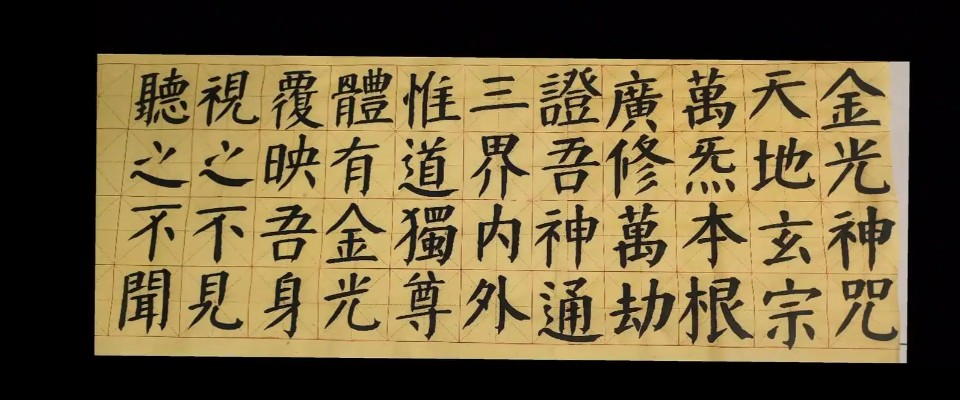 金光神咒
天地玄宗
萬炁本根
廣修萬劫
證吾神通
三界内外
惟道獨尊
體有金光
覆映吾身
視之不見
聽之不聞